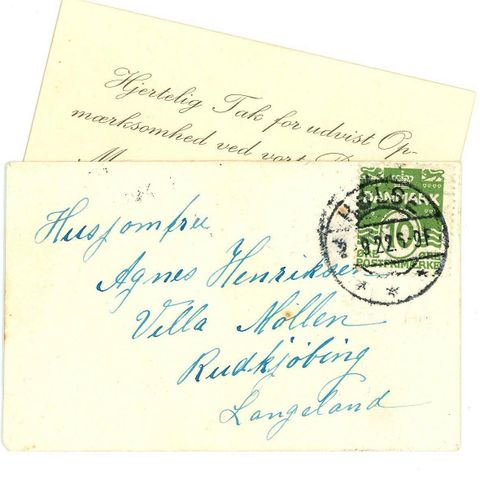 Hjertelig Tak for udvist Op-
mærksomhed ved vort
Husjomfru
Agnes Henriksen
Villa Møllen
Rudkjøbing
Langeland
DANMARK
10
ØRE ØRE
POSTFRIMÆRKE